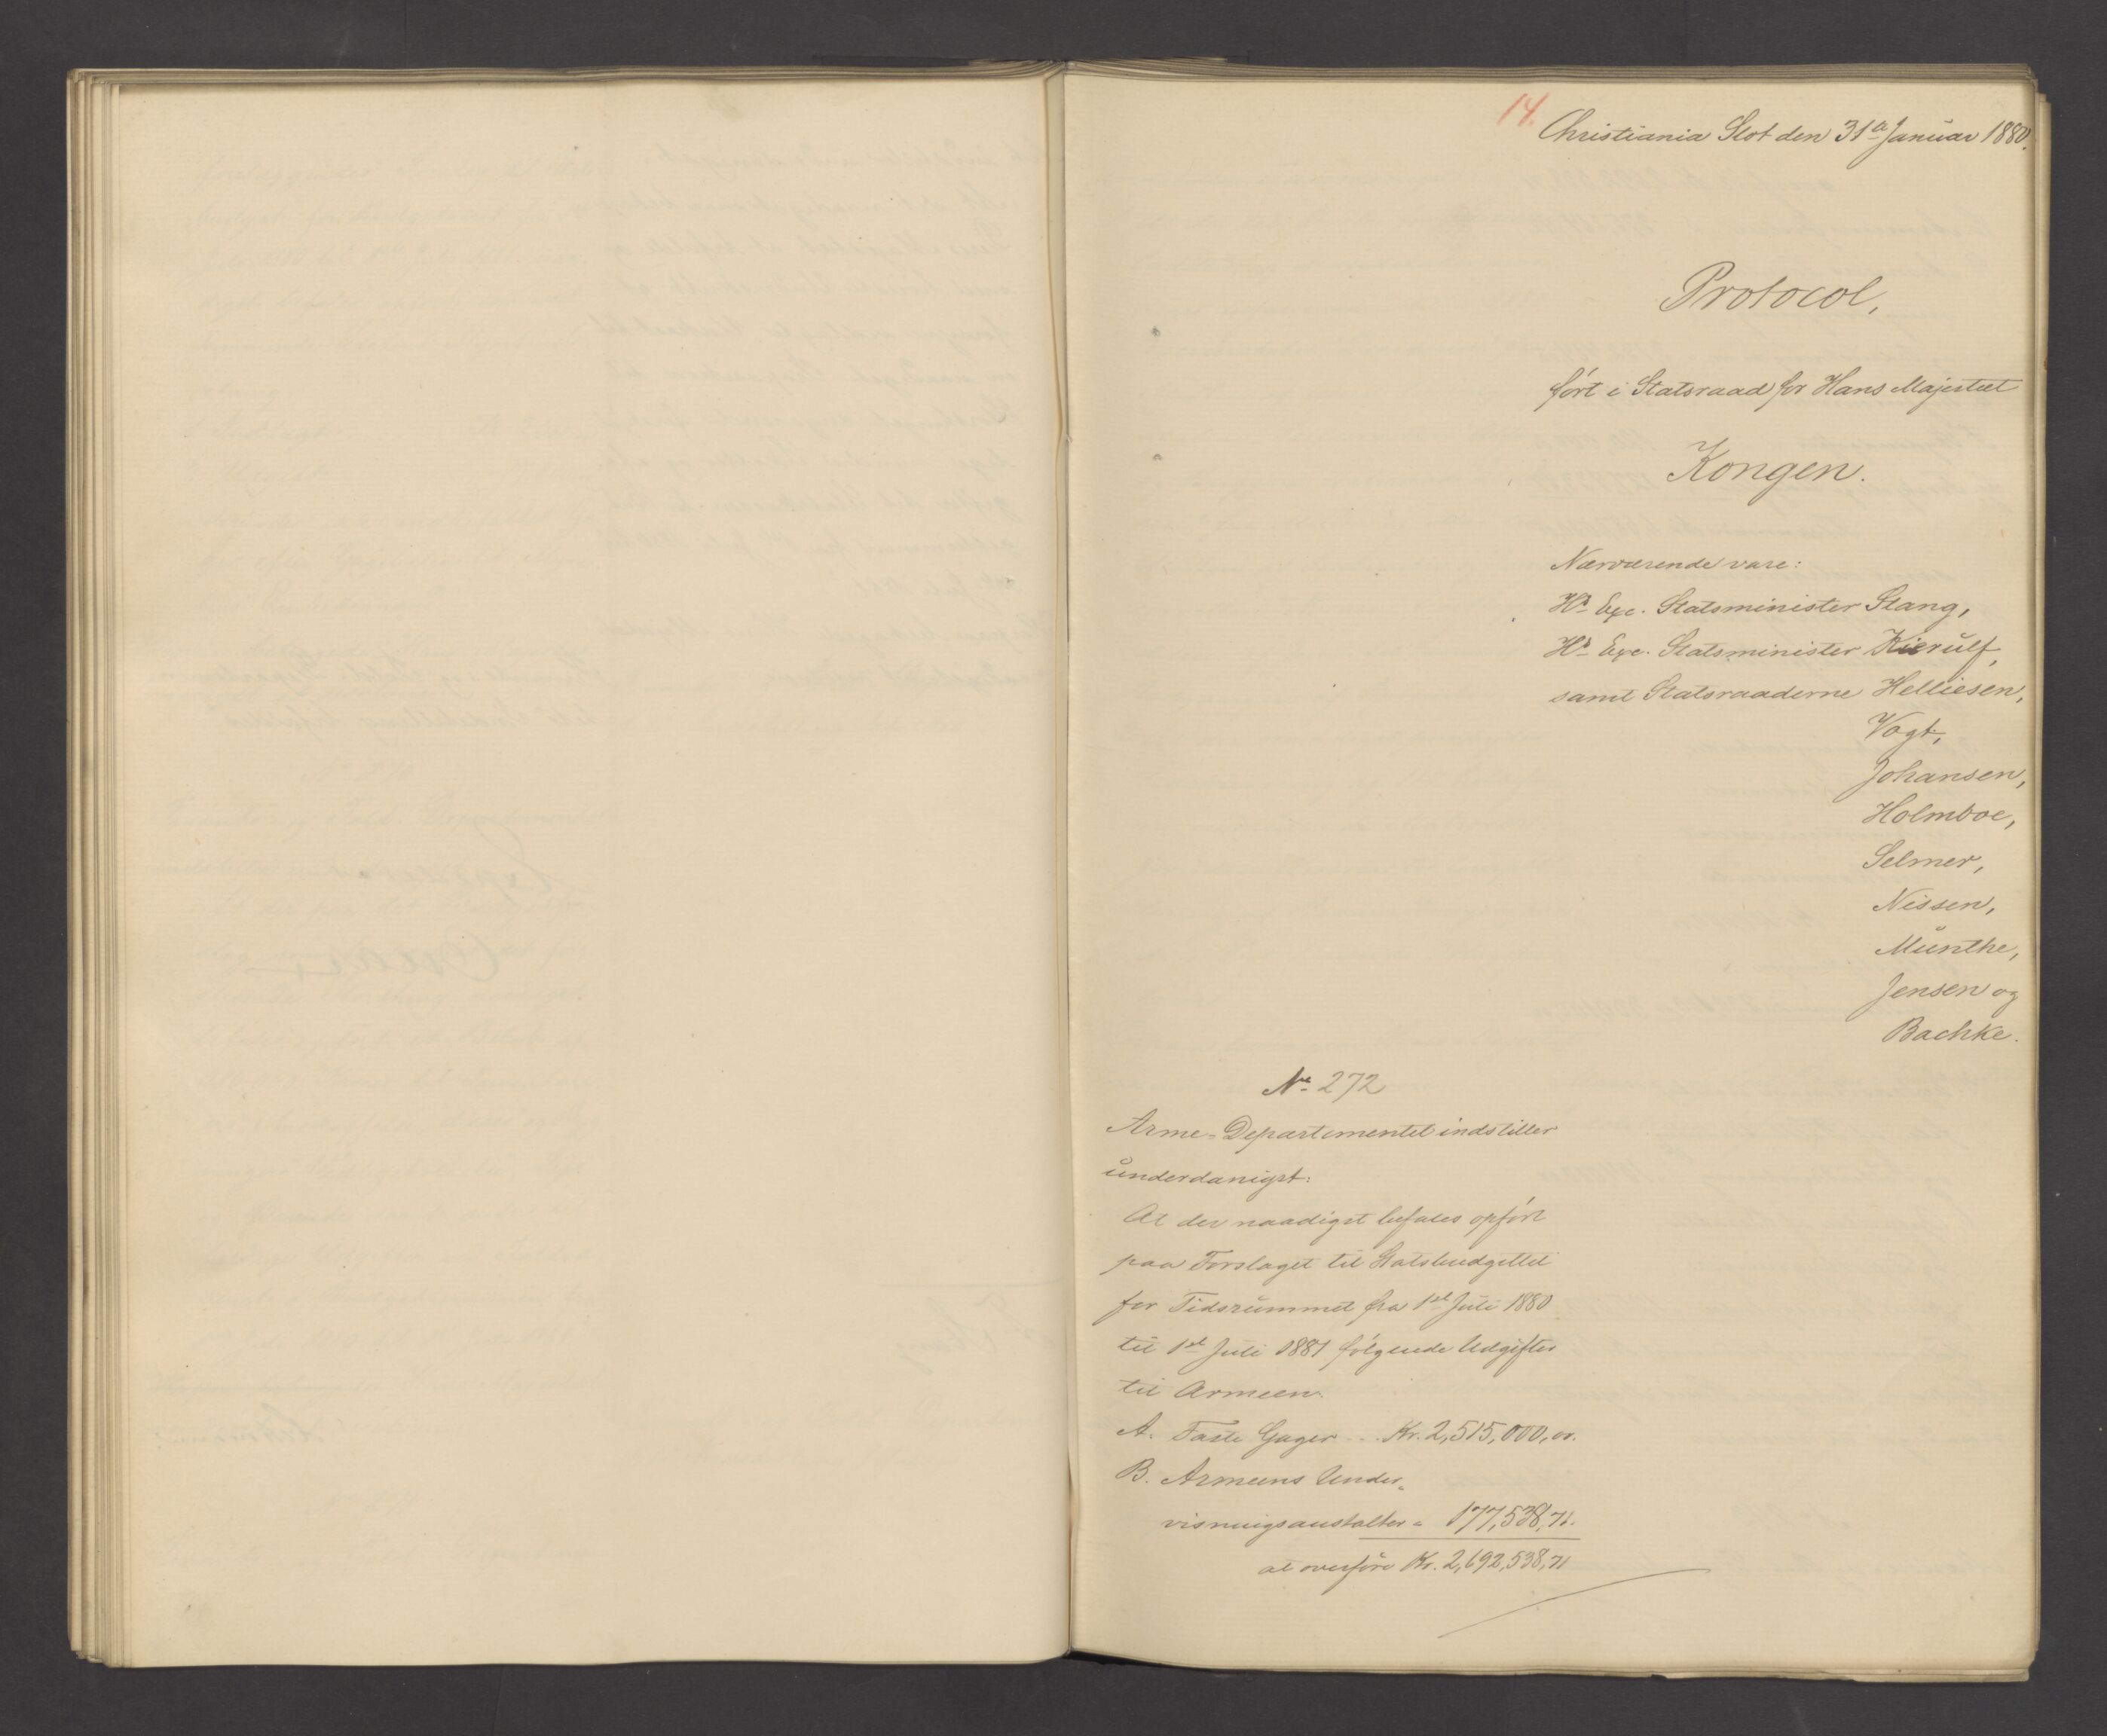 14.
Christiania Slot den 31te Januar 1880.
Protocol,
ført i Statsraad for Hans Majestæt
Kongen.
Nærværende vare:
Hs. Exc. Statsminister Stang,
Hs. Exc. Statsminister Kierulf,
samt Statsraaderne Helliesen,
Vogt,
Johansen,
Holmboe,
Selmer,
Nissen,
Munthe,
Jensen og
Bachke.
No. 272
Arme-Departementet indstiller
underdanigst:
At der naadigst befales opført
paa Forslaget til Statsbudgettet
for Tidsrummet fra 1ste Juli 1880
til 1ste Juli 1881 følgende Udgifter
til Armeen:
A. Faste Gager ... Kr. 2,515,000,00.
B. Armeens Under-
visningsanstalter „ 177,538,71.
at overføre Kr. 2,692,538,71